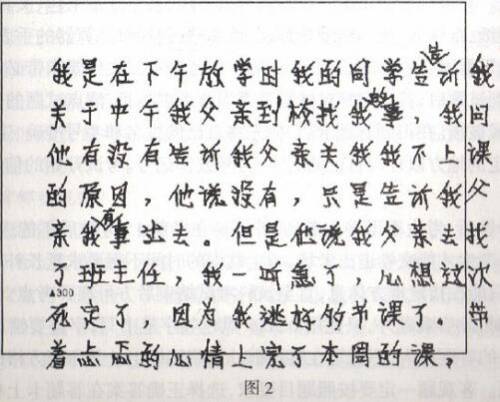 我是在下午放学时我的同学告诉我
关于中午我父亲到校找我事，我问
他有没有告诉我父亲关我我不上课
的原因，他说没有，只是告诉我父
亲我有事出去。但是他说我父亲去找
了班主任。我一听急了，心想这次
▲300
死定了，因为我逃好的书课……，带
着忐忑的心情上完了本周的课，
图2